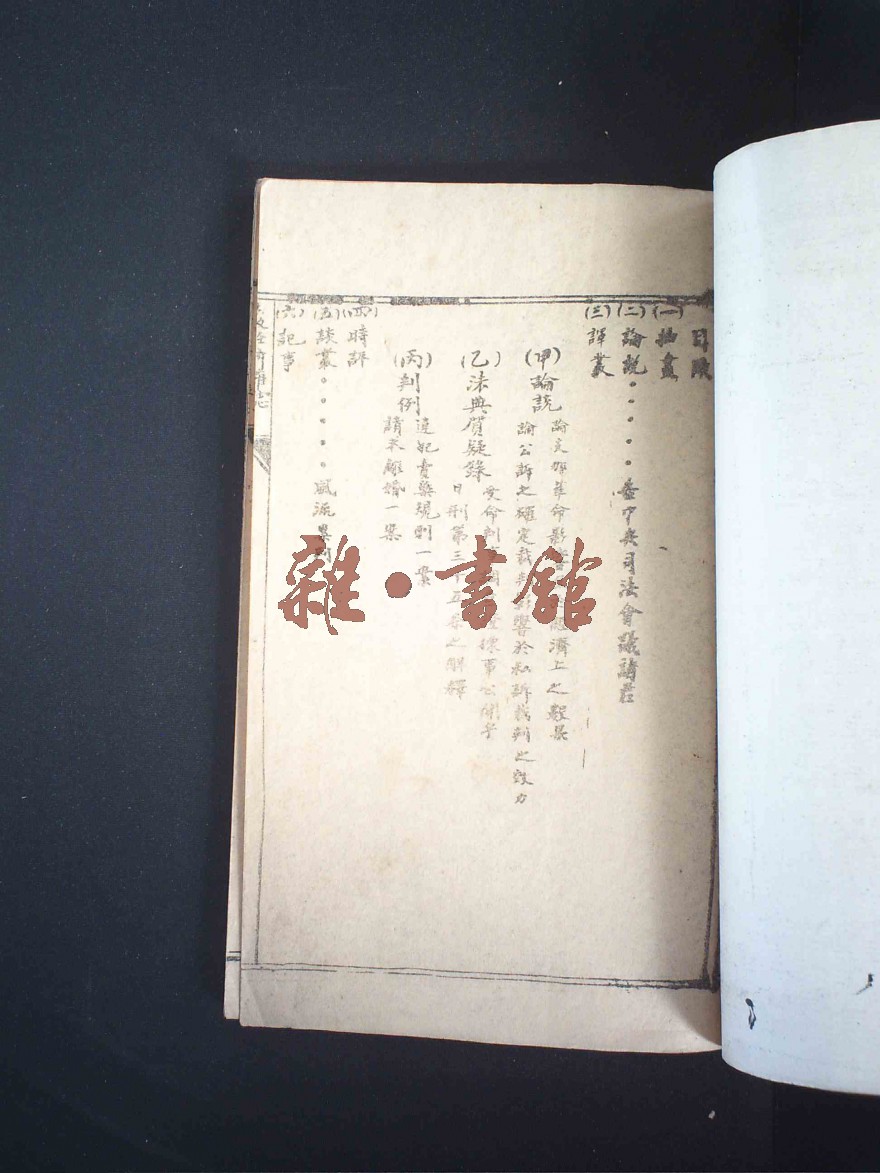 目錄
(一)插畫
(二)論說 • • • • • 臨中央司法會議諸君
(三)譯叢
(甲)論說
論支那革命影響經濟上之效果
論公訴之確定裁判影響於私訴裁判之效力
(乙)法典質疑錄
受命判事公開乎
日刑第三十五條之解釋
(丙)判例
違犯賣藥規則一案
請求離婚一案
(四)時評
(五)談叢 • • • • • 風流
(六)記事
雜•書館